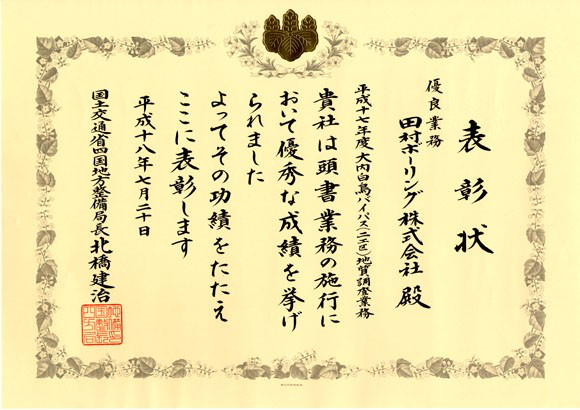 表彰状
優良業務
田村ボーリング株式会社 殿
平成十七年度 大内白鳥バイパス(二工区)地質調査業務
貴社は頭書業務の施行に
おいて優秀な成績を挙げ
られました
よってその功績をたたえ
ここに表彰します
平成十八年七月二十日
国土交通省四国地方整備局長 北橋建治